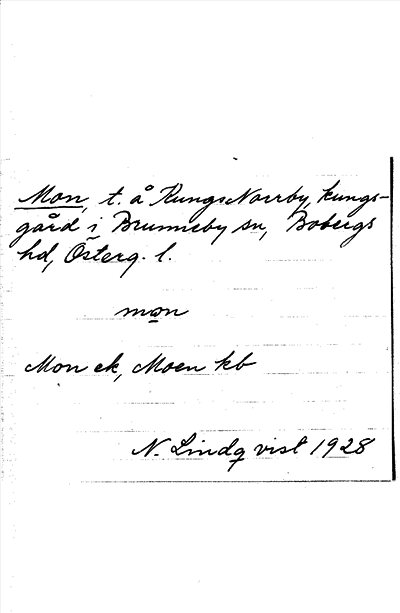 Mon, t. å Kungs Norrby, kungs-
gård i Brunneby sn, Bobergs
hd, Österg. l.
mo̲n
Mon ek, Moen kb
N. Lindqvist 1928